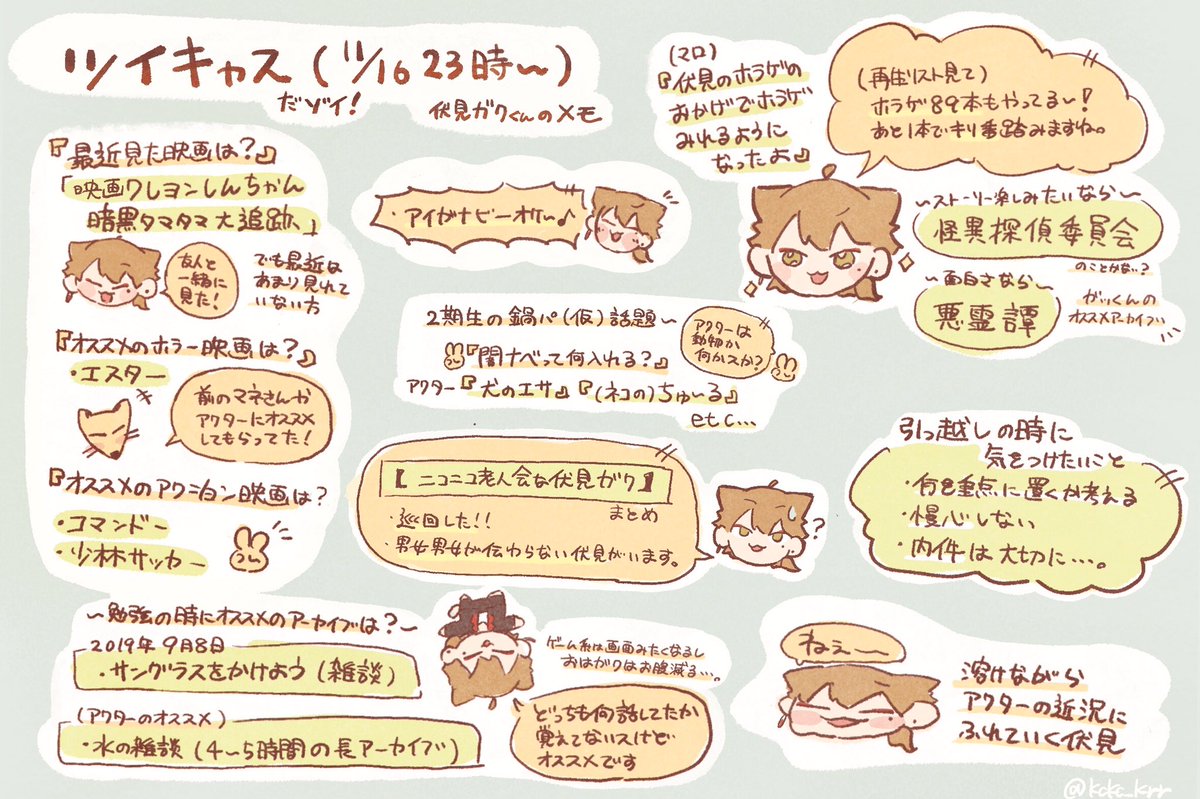 ツイキャス(11/16 23時〜)
だゾイ!
伏見ガクくんのメモ
『最近見た映画は?』
「映画クレヨンしんちゃん
暗黒タマタマ大追跡」
友人と
一緒に
見た!
でも最近は
あまり見れて
いない方
『オススメのホラー映画は?』
・エスター
前のマネさんか
アクターにオススメ
してもらってた!
『オススメのアクション映画は?
・コマンドー
・少林サッカー
〜勉強の時にオススメのアーカイブは?〜
2019年9月8日
・サングラスをかけよう(雑談)
(アクターのオススメ)
・水の雑談(4〜5時間の長アーカイブ)
・アイがナビーオケ〜♪
2期生の鍋パ(仮)話題〜
『闇ナベって何入れる?』
アクター『犬のエサ』『(ネコの)ちゅ〜る』
etc…
アクターは
動物か
何かスか?
【ニコニコ老人会な伏見ガク】
まとめ
・巡回した!!
・男女男女が伝わらない伏見がいます。
?
ゲーム系は画面みたくなるし
おはガクはお腹減る…。
どっちも何話してたか
覚えてないスけど
オススメです
(マロ)
『伏見のホラゲの
おかげでホラゲ
みれるように
なったよ』
(再生リスト見て)
ホラゲ89本もやってる〜!
あと1本でキリ番踏みますね。
〜ストーリー楽しみたいなら〜
怪異探偵委員会
のことかな…?
〜面白さなら〜
悪霊譚
がっくんの
オススメアーカイブ
引っ越しの時に
気をつけたいこと
・何を重点に置くか考える
・慢心しない
・内件は大切に…。
ねぇ〜
溶けながら
アクターの近況に
ふれていく伏見
@kckc_krr